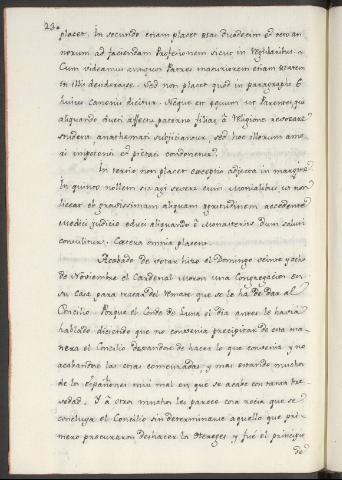 230
placet. In secundo etiam placet etas duodecim et octo an
norum ad faciendam Professionem sicut in Regularibus.
Cum videamus antiquos Patres maturiorem etiam etatem
in illis desiderasse. Sed non placet quod in paragrapho 6
huius Canonis dicitur. Neque est equum ut Parentes, qui
aliquando duci affectu paterno filias à Religione revocare
student, anathemati subjiciantur, sed hoc illorum amo
ri impotenti et pietati condonetur.
In tertio non placet exceptio adjecta in margine.
In quinto nollem sic agi severe cum Monialibus, ut non
liceat ob gravissimam aliquam egritudinem accedente
Medici judicio educi aliquando è Monasterio dum saluti
consulitur. Cætera omnia placent.
Acabado de votar hizo el Domingo veinte y ocho
de Noviembre el Cardenal Moron una Congregacion en
su Casa para tratar del remate que se le ha de dar al
Concilio. Porque el Conde de Luna el dia antes le havia
hablado diciendo que no convenia precipitar de esta ma
nera el Concilio dexandose de hacer lo que convenia y no
acabandose las cosas comenzadas, y mas estando muchos
de los Españoles mui mal en que se acabe con tanta bre
vedad. Y à otros muchos les parece cosa recia que se
concluya el Concilio sin determinarse aquello que pri
mero procuraron deshacer los Hereges y fué el principio
de